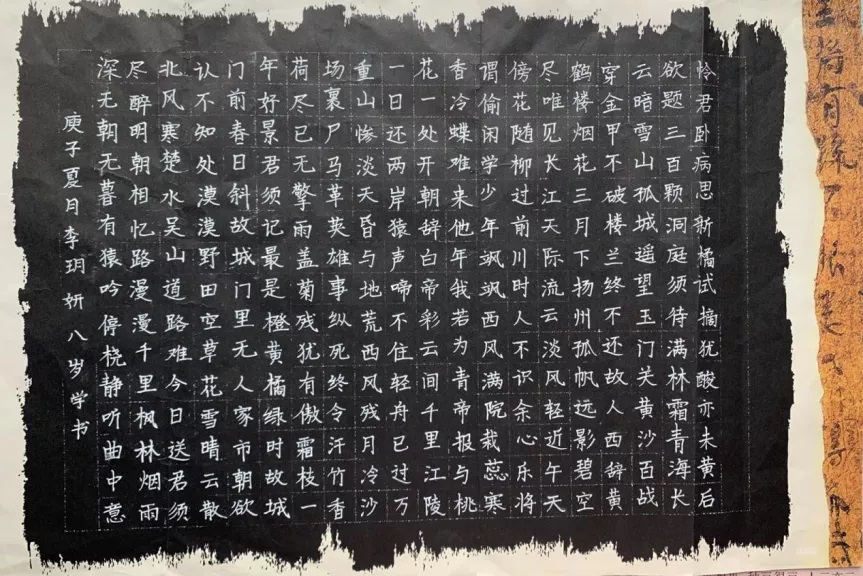 怜君卧病思新橘试摘犹酸亦未黄后
欲题三百颗洞庭须待满林霜青海长
云暗雪山孤城遥望玉门关黄沙百战
穿金甲不破楼兰终不还故人西辞黄
鹤楼烟花三月下扬州孤帆远影碧空
尽唯见长江天际流云淡风轻近午天
傍花随柳过前川时人不识余心乐将
谓偷闲学少年飒飒西风满院栽蕊寒
香冷蝶难来他年我若为青帝报与桃
花一处开朝辞白帝彩云间千里江陵
一日还两岸猿声啼不住轻舟已过万
重山惨淡天昏与地荒西风残月冷沙
场裹尸马革英雄事纵死终令汗竹香
荷尽已无擎雨盖菊残犹有傲霜枝一
年好景君须记最是橙黄橘绿时故城
门前春日斜故城门里无人家市朝欲
认不知处漠漠野田空草花雪晴云散
北风寒楚水吴山道路难今日送君须
尽醉明朝相忆路漫漫千里枫林烟雨
深无朝无暮有猿吟停桡静听曲中意
庚子夏月李玥妍八岁学书